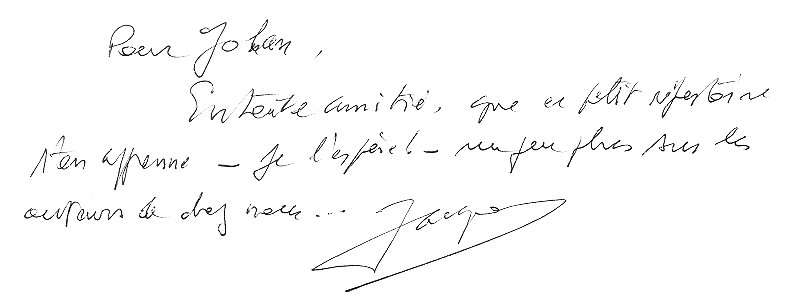 Pour Johan,
En toute amitié, que ce petit répertoire
t'en apprenne – je l'espère! – un peu plus sur les
auteurs de chez nous...
Jacques